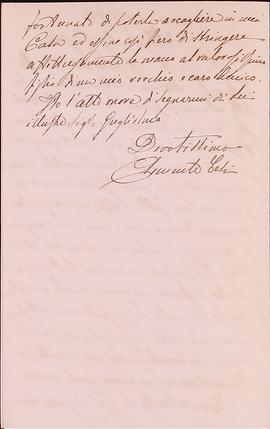 fortunato di poterla accogliere in mia
Casa ed essere così fiero di stringere
affettuosamente la mano al valoroso
figlio di un mio vecchio e caro amico.
Ho l'alto onore di segnarmi di Lei
illustre Sig. Guglielmo
Devotissimo